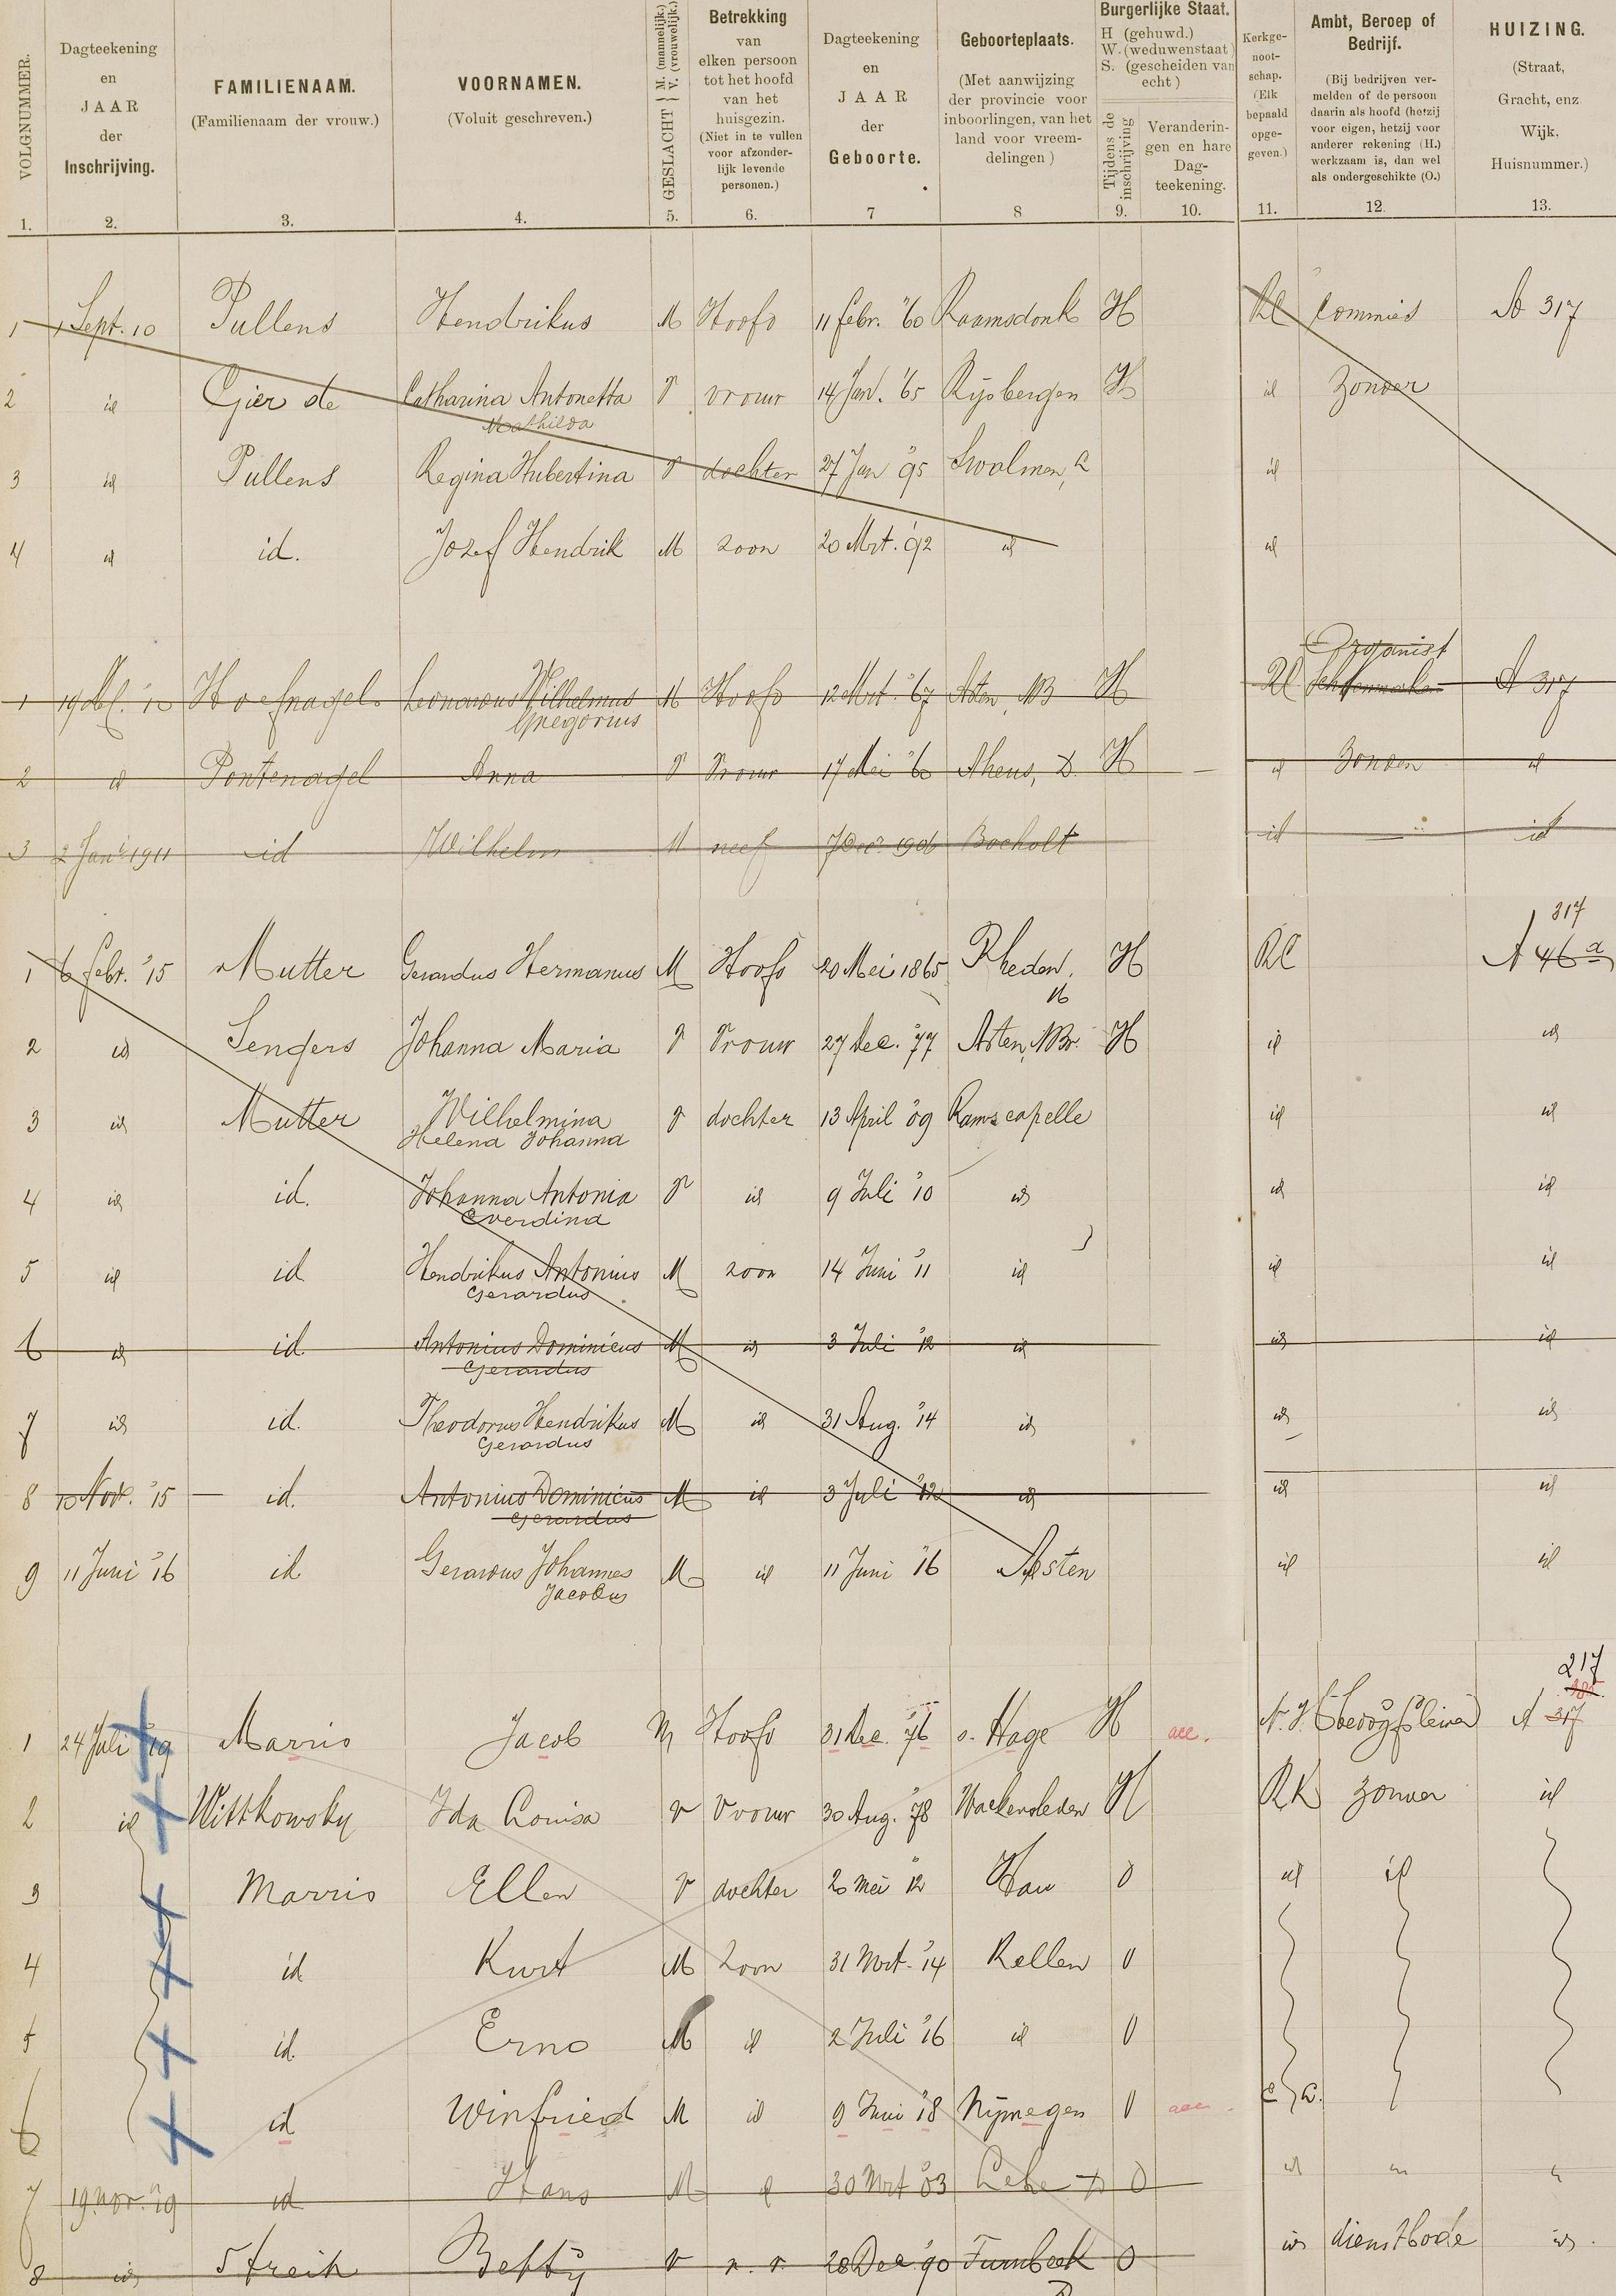 VOLGNUMMER.
Dagteekening
en
JAAR
der
Inschrijving.
FAMILIENAAM.
(Familienaam der vrouw.)
VOORNAMEN.
(Voluit geschreven.)
GESLACHT { M. (mannelijk.) V. (vrouwelijk.)
Betrekking
van
elken persoon
tot het hoofd
van het
huisgezin.
(Niet in te vullen
voor afzonder-
lijk levende
personen.)
Dagteekening
en
JAAR
der
Geboorte.
Geboorteplaats.
(Met aanwijzing
der provincie voor
inboorlingen, van het
land voor vreem-
delingen)
Burgerlijke Staat.
H (gehuwd.)
W. (weduwenstaat)
S. (gescheiden van
echt)
Tijdens de
inschrijving
Veranderin-
gen en hare
Dag-
teekening.
Kerkge-
noot-
schap.
(Elk
bepaald
opge-
geven.)
Ambt, Beroep of
Bedrijf.
(Bij bedrijven ver-
melden of de persoon
daarin als hoofd (hetzij
voor eigen, hetzij voor
anderer rekening (H.)
werkzaam is, dan wel
als ondergeschikte (O.)
HUIZING.
(Straat,
Gracht, enz
Wijk,
Huisnummer.)
1. 2. 3. 4. 5. 6. 7 8 9. 10. 11. 12. 13.
1 1 Sept. 10 Pullens Hendrikus M Hoofd 11 febr. '60 Raamsdonk H RC Commies A 317
2 id Gier de Catharina Antonetta V vrouw 14 Jan. '65 Rijsbergen H id Zonder
Mathilda
3 id Pullens Regina Hubertina V dochter 27 Jan '95 Swalmen, L id
4 id id. Jozef Hendrik M zoon 20 Mrt. '92 id id
Organist
1 Hoefnagel Leonardus Wilhelmus M Hoofd 12 Mrt. '67 Asten NB H RC A 317
Gregorius
2 id Pontenagel Anna V Vrouw 17 Mei '60 Ahaus, D. H id Zonder id
3 2 Jan 1911 id Wilhelm M neef 7 Dec. 1906 Bocholt id id
317
1 6 febr. '15 Mutter Gerardus Hermanus M Hoofd 20 Mei 1865 Rheden, H RC A 46 a
2 id Sengers Johanna Maria V Vrouw 27 Dec. '77 Asten, NBr. H id id
3 id Mutter Wilhelmina V dochter 13 April '09 Ramscapelle id id
Helena Johanna
4 id id. Johanna Antonia V id 9 Juli '10 id id id
Everdina
5 id id Hendrikus Antonius M zoon 14 Juni '11 id id id
Gerardus
6 id id. Antonius Dominicus M id 3 Juli '12 id id id
Gerardus
7 id id. Theodorus Hendrikus M id 31 Aug. '14 id id id
Gerardus
8 10 Nov. '15 id. Antonius Dominicus M id 3 Juli '12 id id id
Gerardus
9 11 Juni '16 id Gerardus Johannes M id 11 Juni '16 Asten id id
Jacobus
217
1 24 Juli '19 Marris Jacob M Hoofd 31 Dec. '76 s. Hage H acc. N.H. A 317
2 id Wittkowsky Ida Louisa V Vrouw 30 Aug. '78 Wackersleben H RK zonder id
3 Marris Ellen V dochter 20 Mei '12 Hau O id id
4 id Kurt M Zoon 31 Mrt. '14 Kellen O
5 id. Erno M id 2 Juli '16 id O
6 id Winfried M id 9 Juni '18 Nijmegen O acc.
7 19 nov. '19 id Hans M id 30 Mrt '03 Lehe D O id
8 id Streik Betty V n. v. 28 Dec. '90 O id dienstbode id.